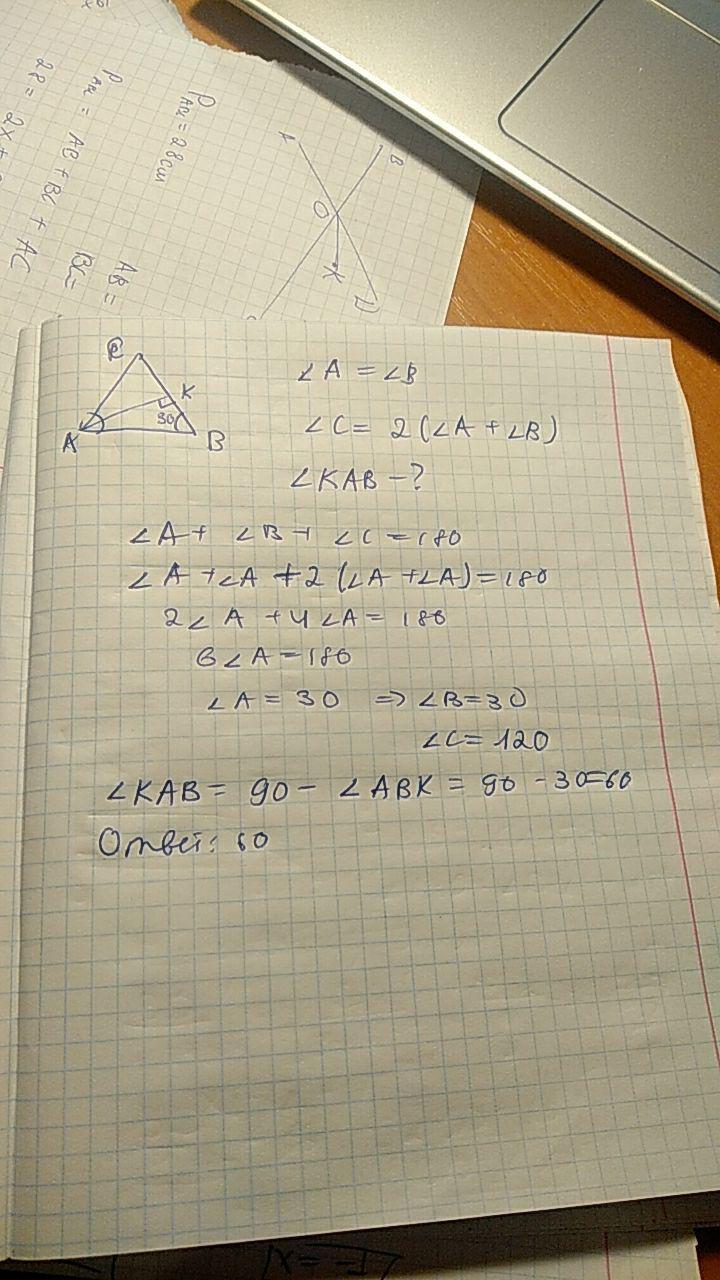 P_ABC = 28 cm
P_ABC = AB + BC + AC
AB =
BC =
A
B
O
K
D
C
K
30
A
B
∠A = ∠B
∠C = 2(∠A + ∠B)
∠KAB - ?
∠A + ∠B + ∠C = 180
∠A + ∠A + 2(∠A + ∠A) = 180
2∠A + 4∠A = 180
6∠A = 180
∠A = 30 => ∠B = 30
∠C = 120
∠KAB = 90 - ∠ABK = 90 - 30 = 60
Ответ: 60